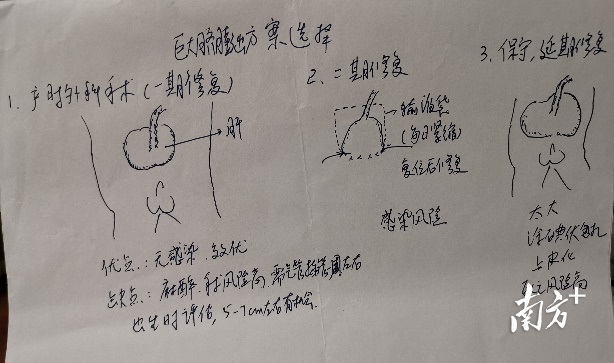 巨大脐膨出方案选择
1. 产时外科手术（一期修复）
肝
优点：无感染、效优
缺点：麻醉、手术风险高、需气管插管 周左右
出生时评估，5-7cm左右有机会
2. 二期修复
输液袋
（每日紧缩）
复位后修复
感染风险
3. 保守，延期修复
太大
涂碘伏
上皮化
风险高
南方+